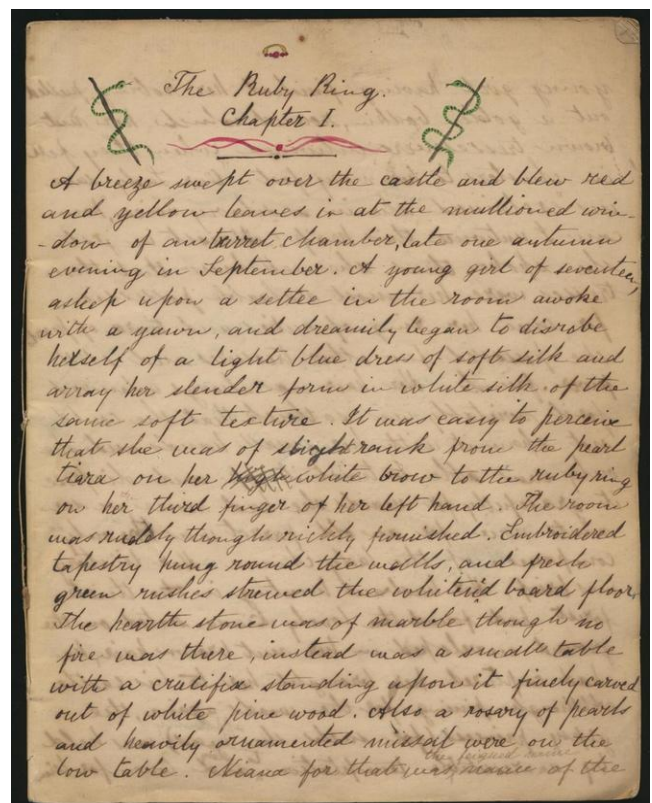 The Ruby Ring.
Chapter I.
A breeze swept over the castle and blew red
and yellow leaves in at the mullioned win-
-dow of an turret chamber, late one autumn
evening in September. A young girl of seventeen,
asleep upon a settee in the room awoke
with a yawn, and dreamily began to disrobe
herself of a light blue dress of soft silk and
array her slender form in white silk of the
same soft texture. It was easy to perceive
that she was of high rank from the pearl
tiara on her white brow to the ruby ring
on her third finger of her left hand. The room
was rudely though richly furnished. Embroidered
tapestry hung round the walls, and fresh
green rushes strewed the whitend board floor.
The hearth stone was of marble though no
fire was there, instead was a small table
with a crucifix standing upon it finely carved
out of white pine wood. Also a rosary of pearls
and heavily ornamented missal were on the
low table. Niana for that was the name of the